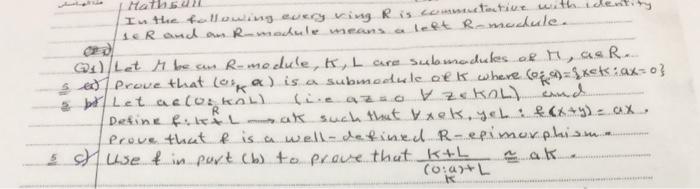 Math511
In the following every ring R is commutative with identity
1∈R and an R-module means a left R-module.
Q1) Let M be an R-module, K, L are submodules of M, a∈R.
5 a) Prove that (0:_K a) is a submodule of K where (0:_K a)={x∈K:ax=0}
5 b) Let a∈(0:_R K∩L) (i.e az=0 ∀ z∈K∩L) and
Define f:K+L → aK such that ∀x∈K, y∈L : f(x+y)=ax.
Prove that f is a well-defined R-epimorphism.
5 c) Use f in part (b) to prove that K+L/(0:_K a)+L ≅ aK.